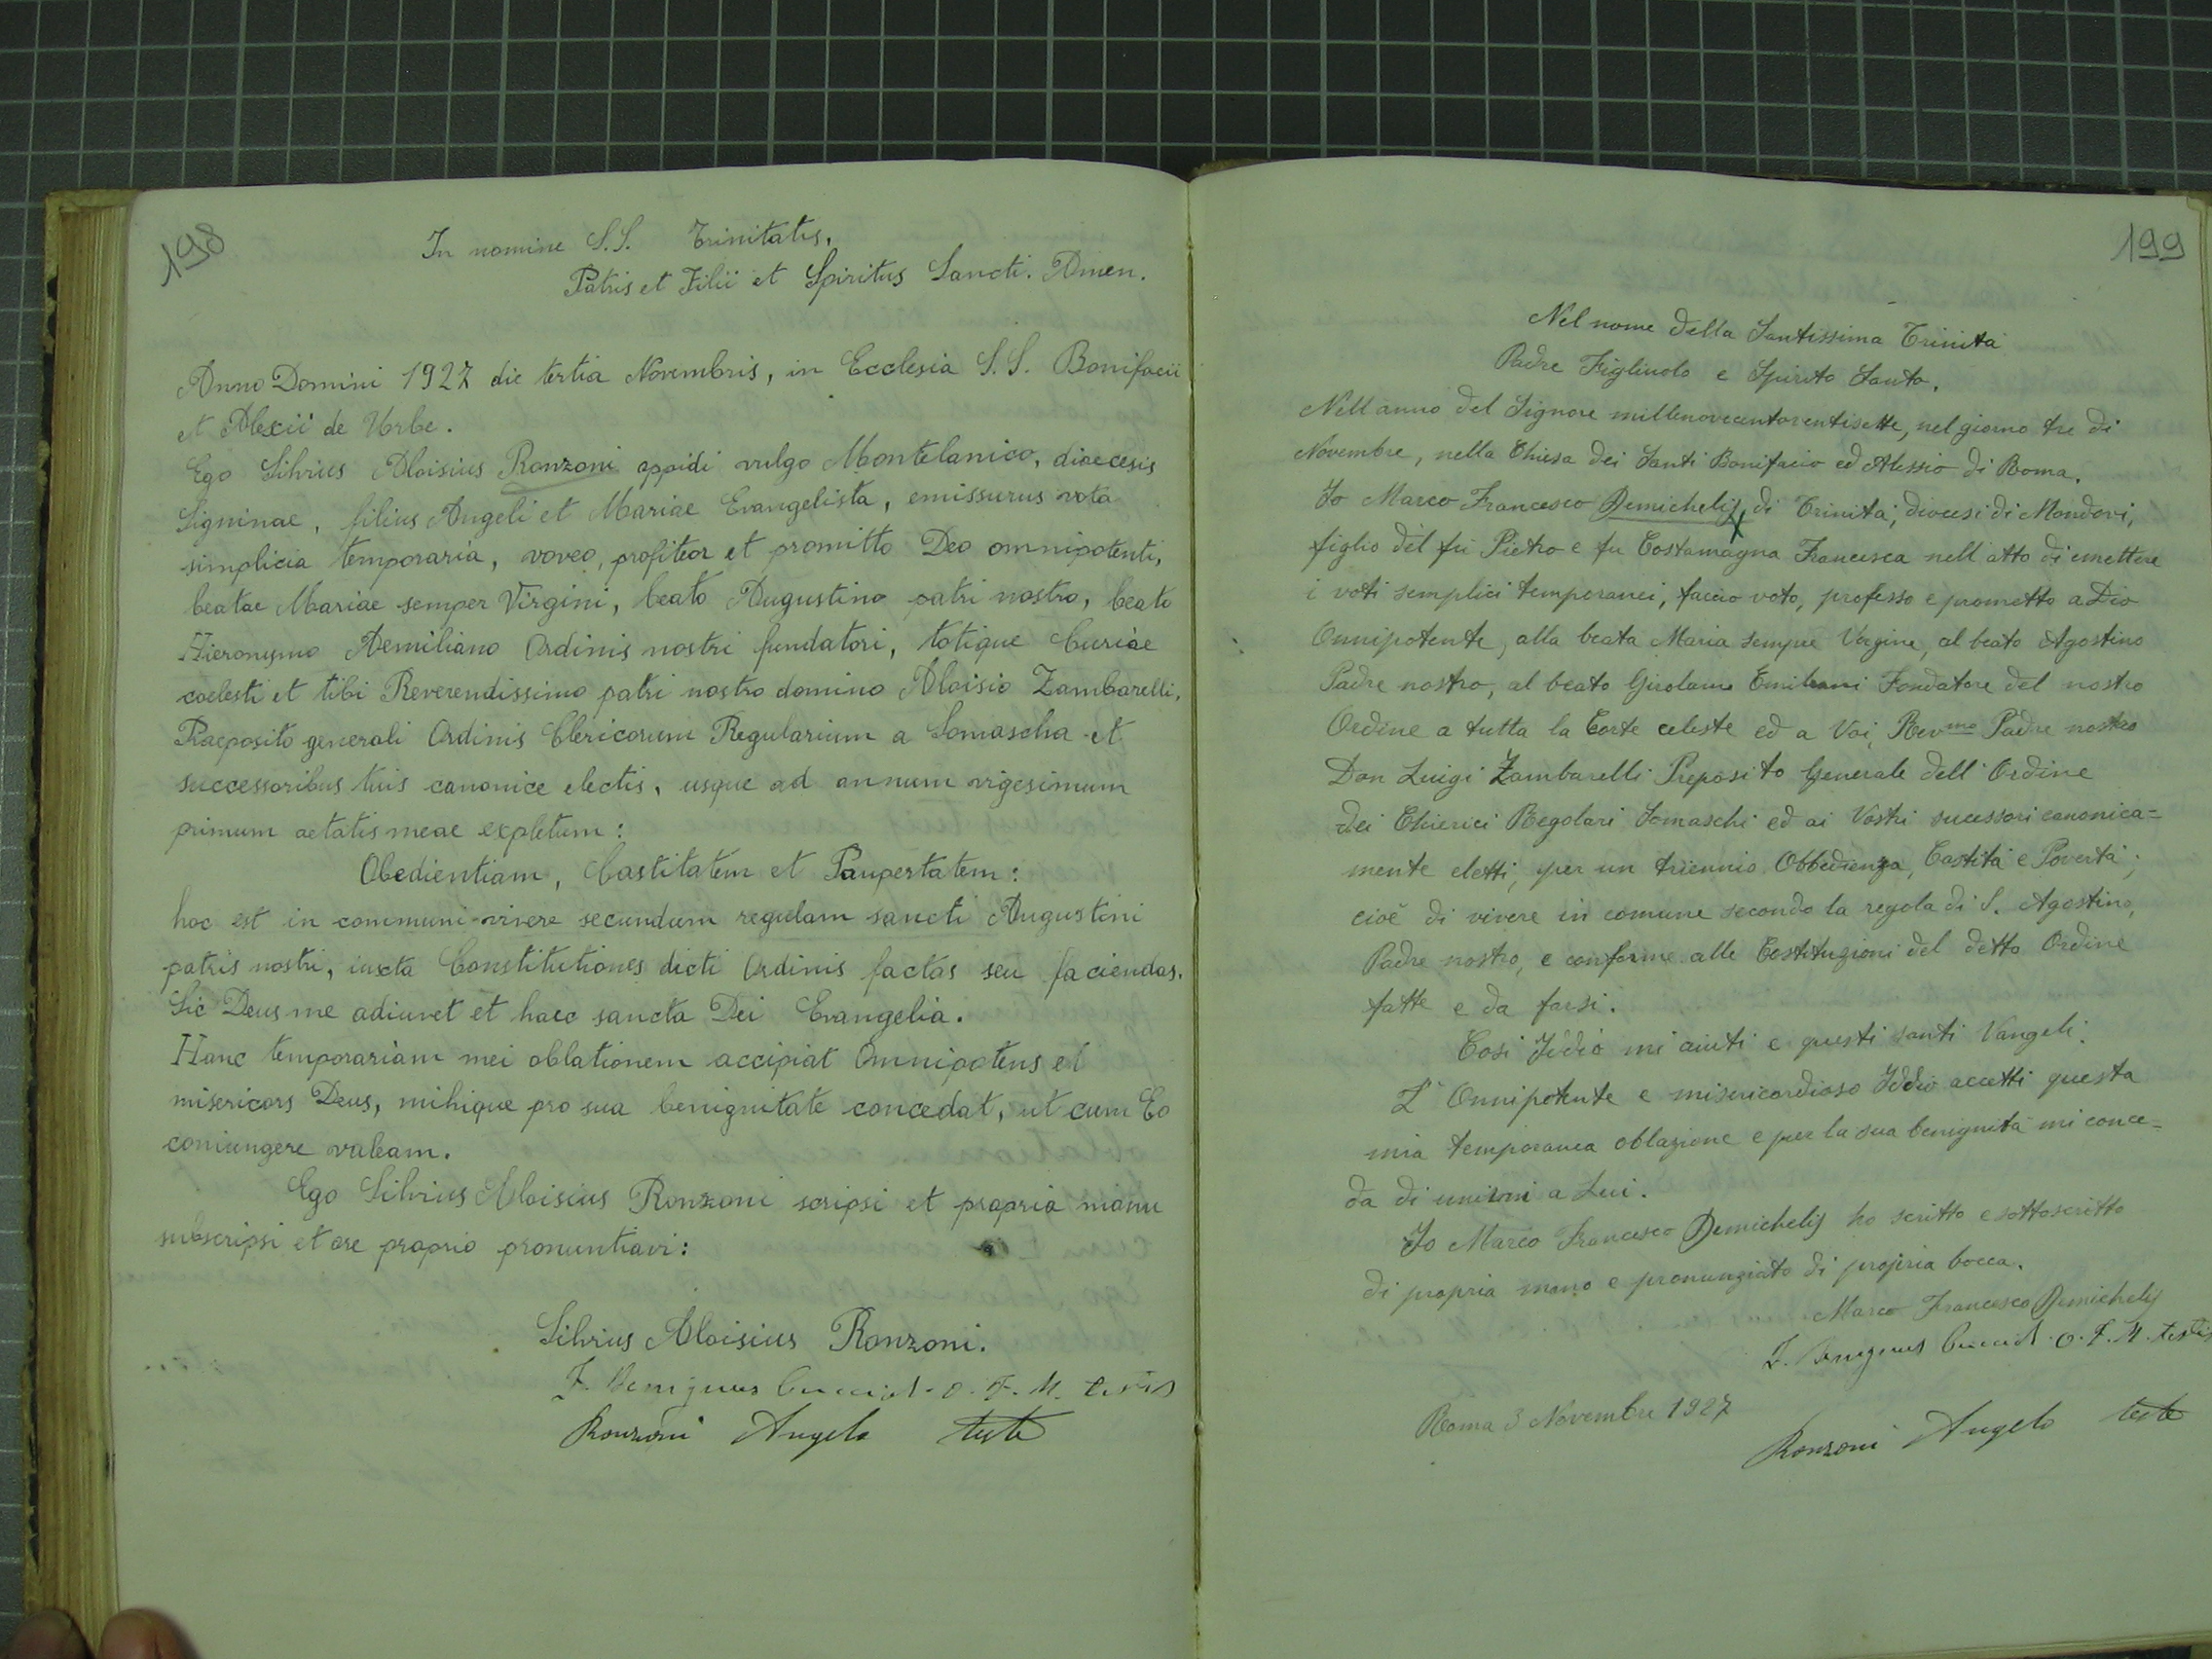 198
In nomine S.S. Trinitatis,
Patris et Filii et Spiritus Sancti. Amen.
Anno Domini 1927 die tertia Novembris, in Ecclesia S.S. Bonifacii
et Alexii de Urbe.
Ego Silvius Aloisius Ronzoni oppidi vulgo Montelanico, dioecesis
Signinae, filius Angeli et Mariae Evangelista, emissurus vota
simplicia temporaria, voveo, profiteor et promitto Deo omnipotenti,
beatae Mariae semper Virgini, beato Augustino patri nostro, beato
Hieronymo Aemiliano Ordinis nostri fundatori, totique Curiae
coelesti et tibi Reverendissimo patri nostro domino Aloisio Zambarelli,
Praeposito generali Ordinis Clericorum Regularium a Somascha et
successoribus tuis canonice electis, usque ad annum vigesimum
primum aetatis meae expletum:
Obedientiam, Castitatem et Paupertatem:
hoc est in communi vivere secundum regulam sancti Augustini
patris nostri, iuxta Constitutiones dicti Ordinis factas seu faciendas.
Sic Deus me adiuvet et haec sancta Dei Evangelia.
Hanc temporariam mei oblationem accipiat Omnipotens et
misericors Deus, mihique pro sua benignitate concedat, ut cum Eo
coniungere valeam.
Ego Silvius Aloisius Ronzoni scripsi et propria manu
subscripsi et ore proprio pronuntiavi:
Silvius Aloisius Ronzoni.
F. Benignus O.F.M. testis
Ronzoni Angelo teste
199
Nel nome della Santissima Trinità
Padre Figliuolo e Spirito Santo.
Nell anno del Signore millenovecentoventisette, nel giorno tre di
Novembre, nella Chiesa dei Santi Bonifacio ed Alessio di Roma.
Io Marco Francesco Demichelis, di Trinità, diocesi di Mondovì,
figlio del fu Pietro e fu Costamagna Francesca nell atto di emettere
i voti semplici temporanei, faccio voto, professo e prometto a Dio
Onnipotente, alla beata Maria sempre Vergine, al beato Agostino
Padre nostro, al beato Girolamo Emiliani Fondatore del nostro
Ordine a tutta la Corte celeste ed a Voi, Revmo Padre nostro
Don Luigi Zambarelli Preposito Generale dell' Ordine
dei Chierici Regolari Somaschi ed ai Vostri sucessori canonica=
mente eletti, per un triennio Obbedienza, Castità e Povertà;
cioè di vivere in comune secondo la regola di S. Agostino,
Padre nostro, e conforme alle Costituzioni del detto Ordine
fatte e da farsi.
Così Iddio mi aiuti e questi santi Vangeli.
L' Onnipotente e misericordioso Iddio accetti questa
mia temporanea oblazione e per la sua benignità mi conce=
da di unirmi a Lui.
Io Marco Francesco Demichelis ho scritto e sottoscritto
di propria mano e pronunziato di propria bocca.
Marco Francesco Demichelis
F. Benignus O.F.M. testis
Roma 3 Novembre 1927
Ronzoni Angelo teste